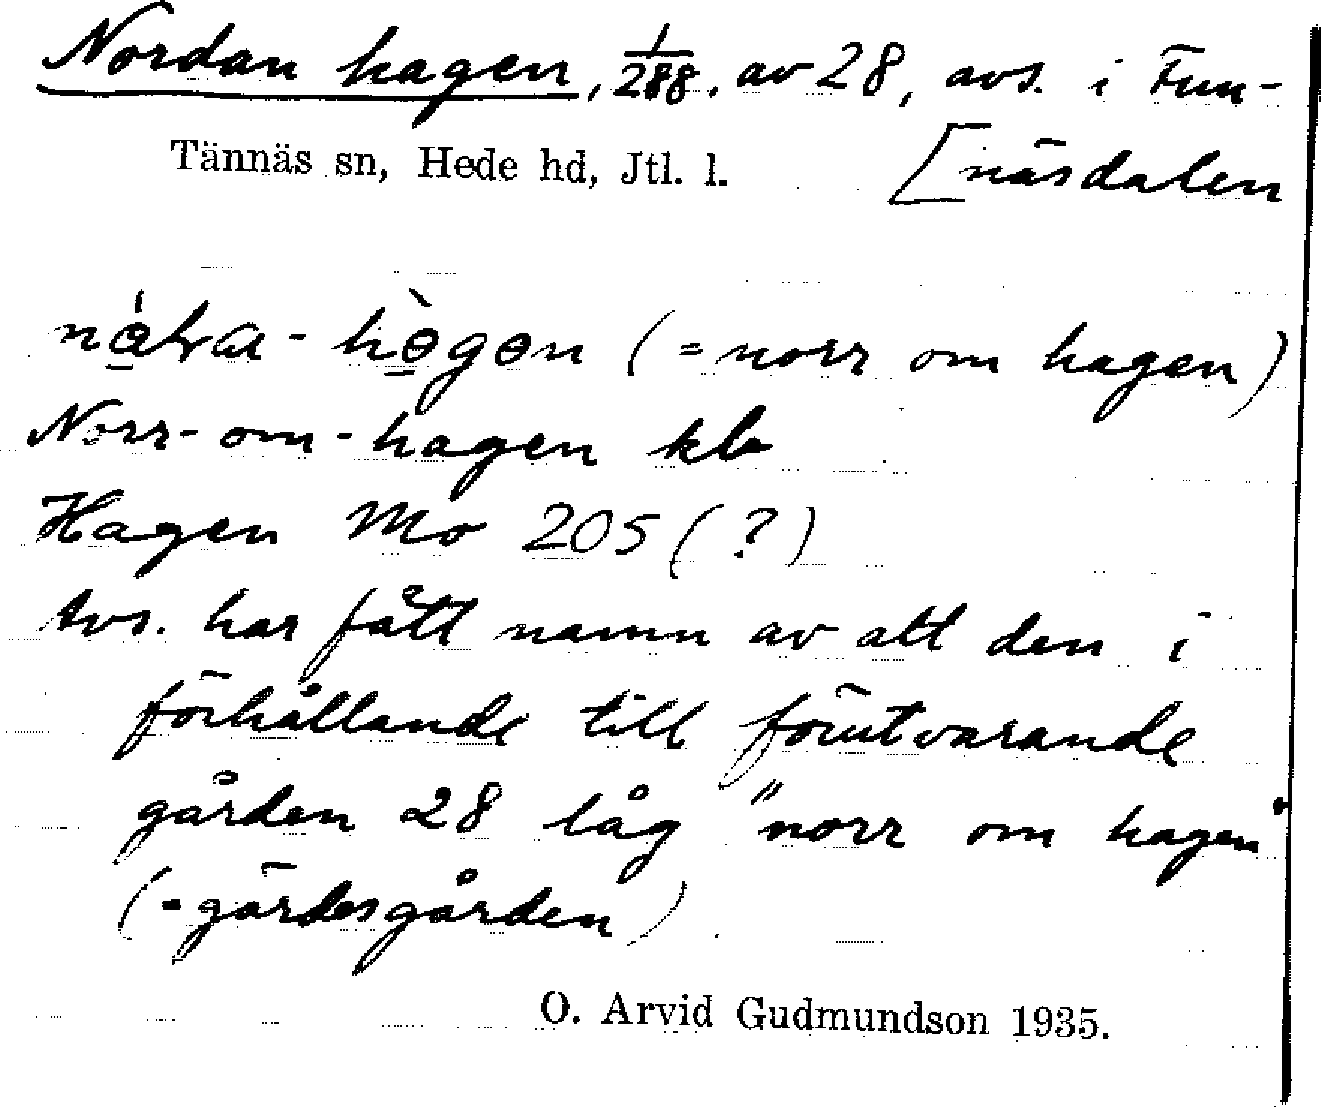 Nordan hagen, 1/288, av 28, avs. i Fun-
Tännäs sn, Hede hd, Jtl. l. [näsdalen
(= norr om hagen)
Norr-om-hagen kb
Hagen Mo 205 (?)
Avs. har fått namn av att den i
förhållande till förutvarande
gården 28 låg "norr om hagen"
(= gärdesgården)
O. Arvid Gudmundson 1935.